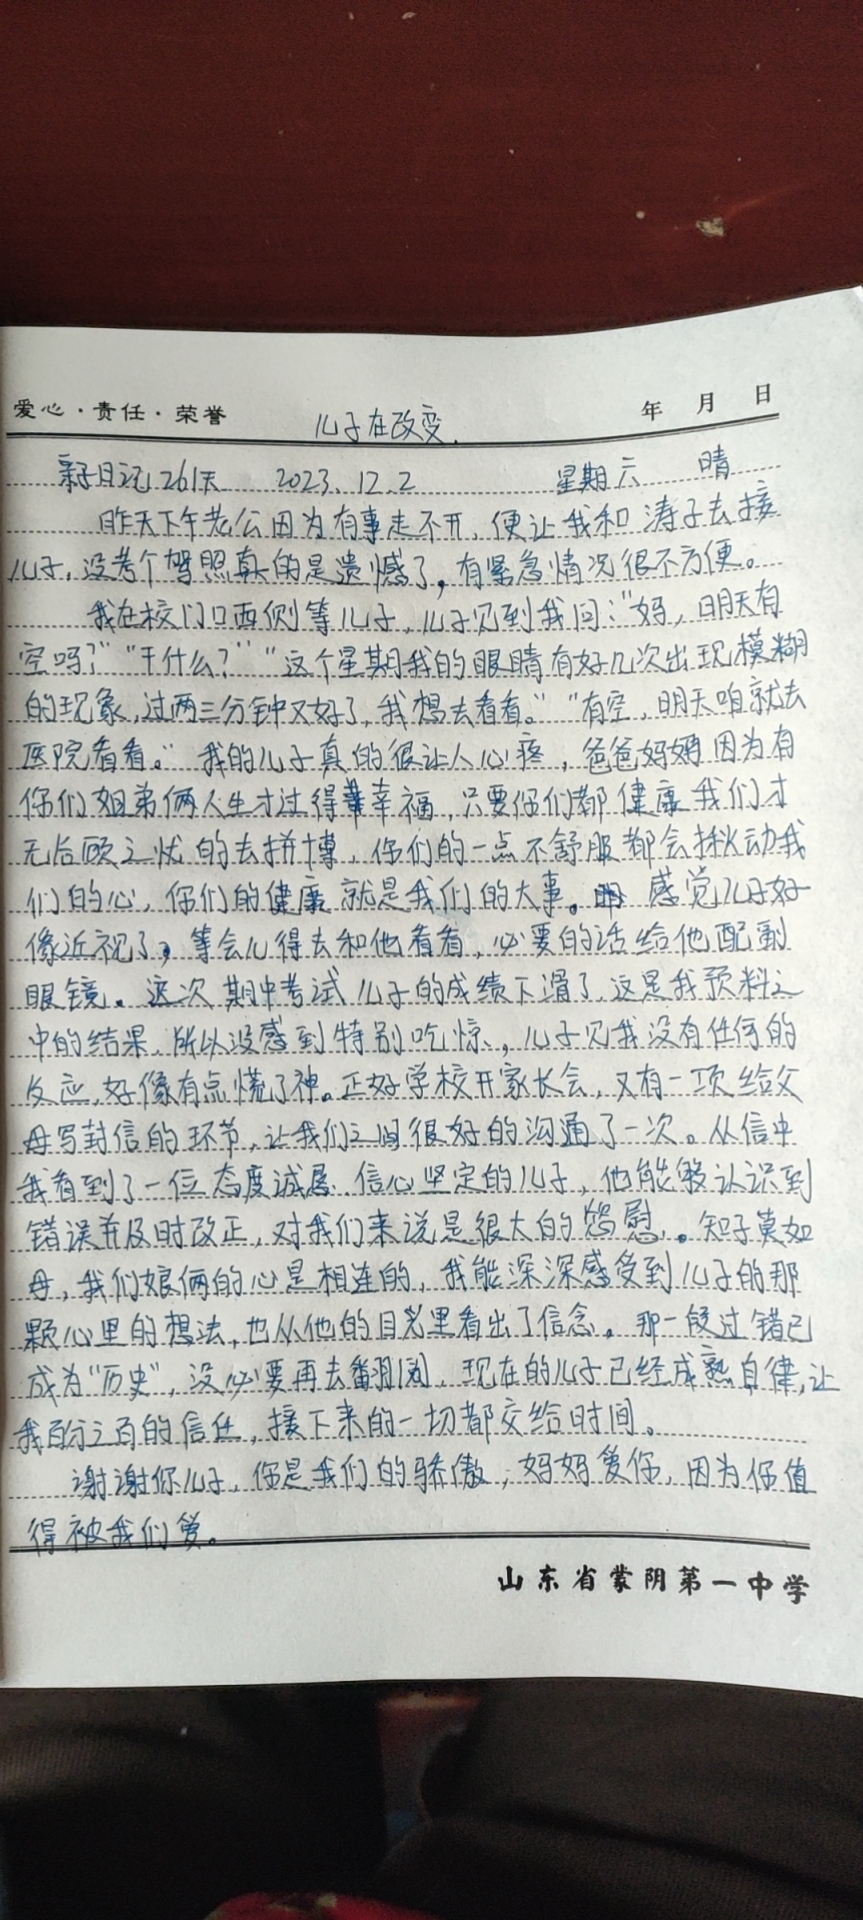 爱心·责任·荣誉
年 月 日
儿子在改变.
亲子日记261天 2023.12.2 星期六 晴
昨天下午老公因为有事走不开,便让我和涛子去接
儿子,没考个驾照真的是遗憾了,有紧急情况很不方便。
我在校门口西侧等儿子,儿子见到我问:“妈,明天有
空吗?”“干什么?”“这个星期我的眼睛有好几次出现模糊
的现象,过两三分钟又好了,我想去看看。”“有空,明天咱就去
医院看看。”我的儿子真的很让人心疼,爸爸妈妈因为有
你们姐弟俩人生才过得幸福,只要你们都健康我们才
无后顾之忧的去拼博,你们的一点不舒服都会揪动我
们的心,你们的健康就是我们的大事。感觉儿子好
像近视了,等会儿得去和他看看,必要的话给他配副
眼镜。这次期中考试儿子的成绩下滑了,这是我预料之
中的结果,所以没感到特别吃惊,儿子见我没有任何的
反应,好像有点慌了神。正好学校开家长会,又有一项给父
母写封信的环节,让我们之间很好的沟通了一次。从信中
我看到了一位态度诚恳、信心坚定的儿子,他能够认识到
错误并及时改正,对我们来说是很大的慰。知子莫如
母,我们娘俩的心是相连的,我能深深感受到儿子的那
颗心里的想法,也从他的目光里看出了信念。那一段过错已
成为“历史”,没必要再去翻阅,现在的儿子已经成熟自律,让
我百分之百的信任,接下来的一切都交给时间。
谢谢你儿子,你是我们的骄傲,妈妈爱你,因为你值
得被我们爱。
山东省蒙阴第一中学